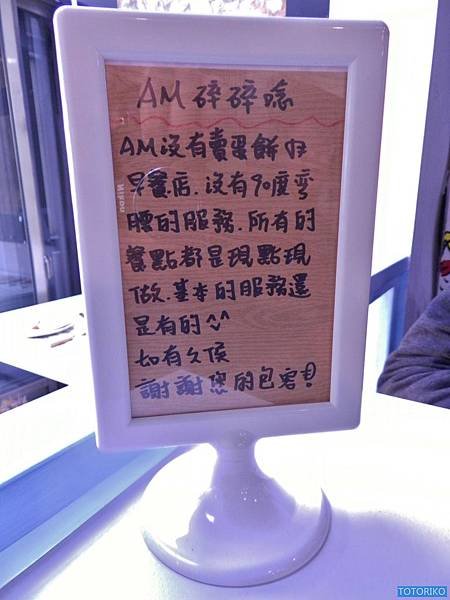 AM 碎碎唸
AM沒有賣蛋餅的
早餐店.沒有90度彎
腰的服務.所有的
餐點都是現點現
做.基本的服務還
是有的^^
如有久候
謝謝您的包容!
TOTORIKO